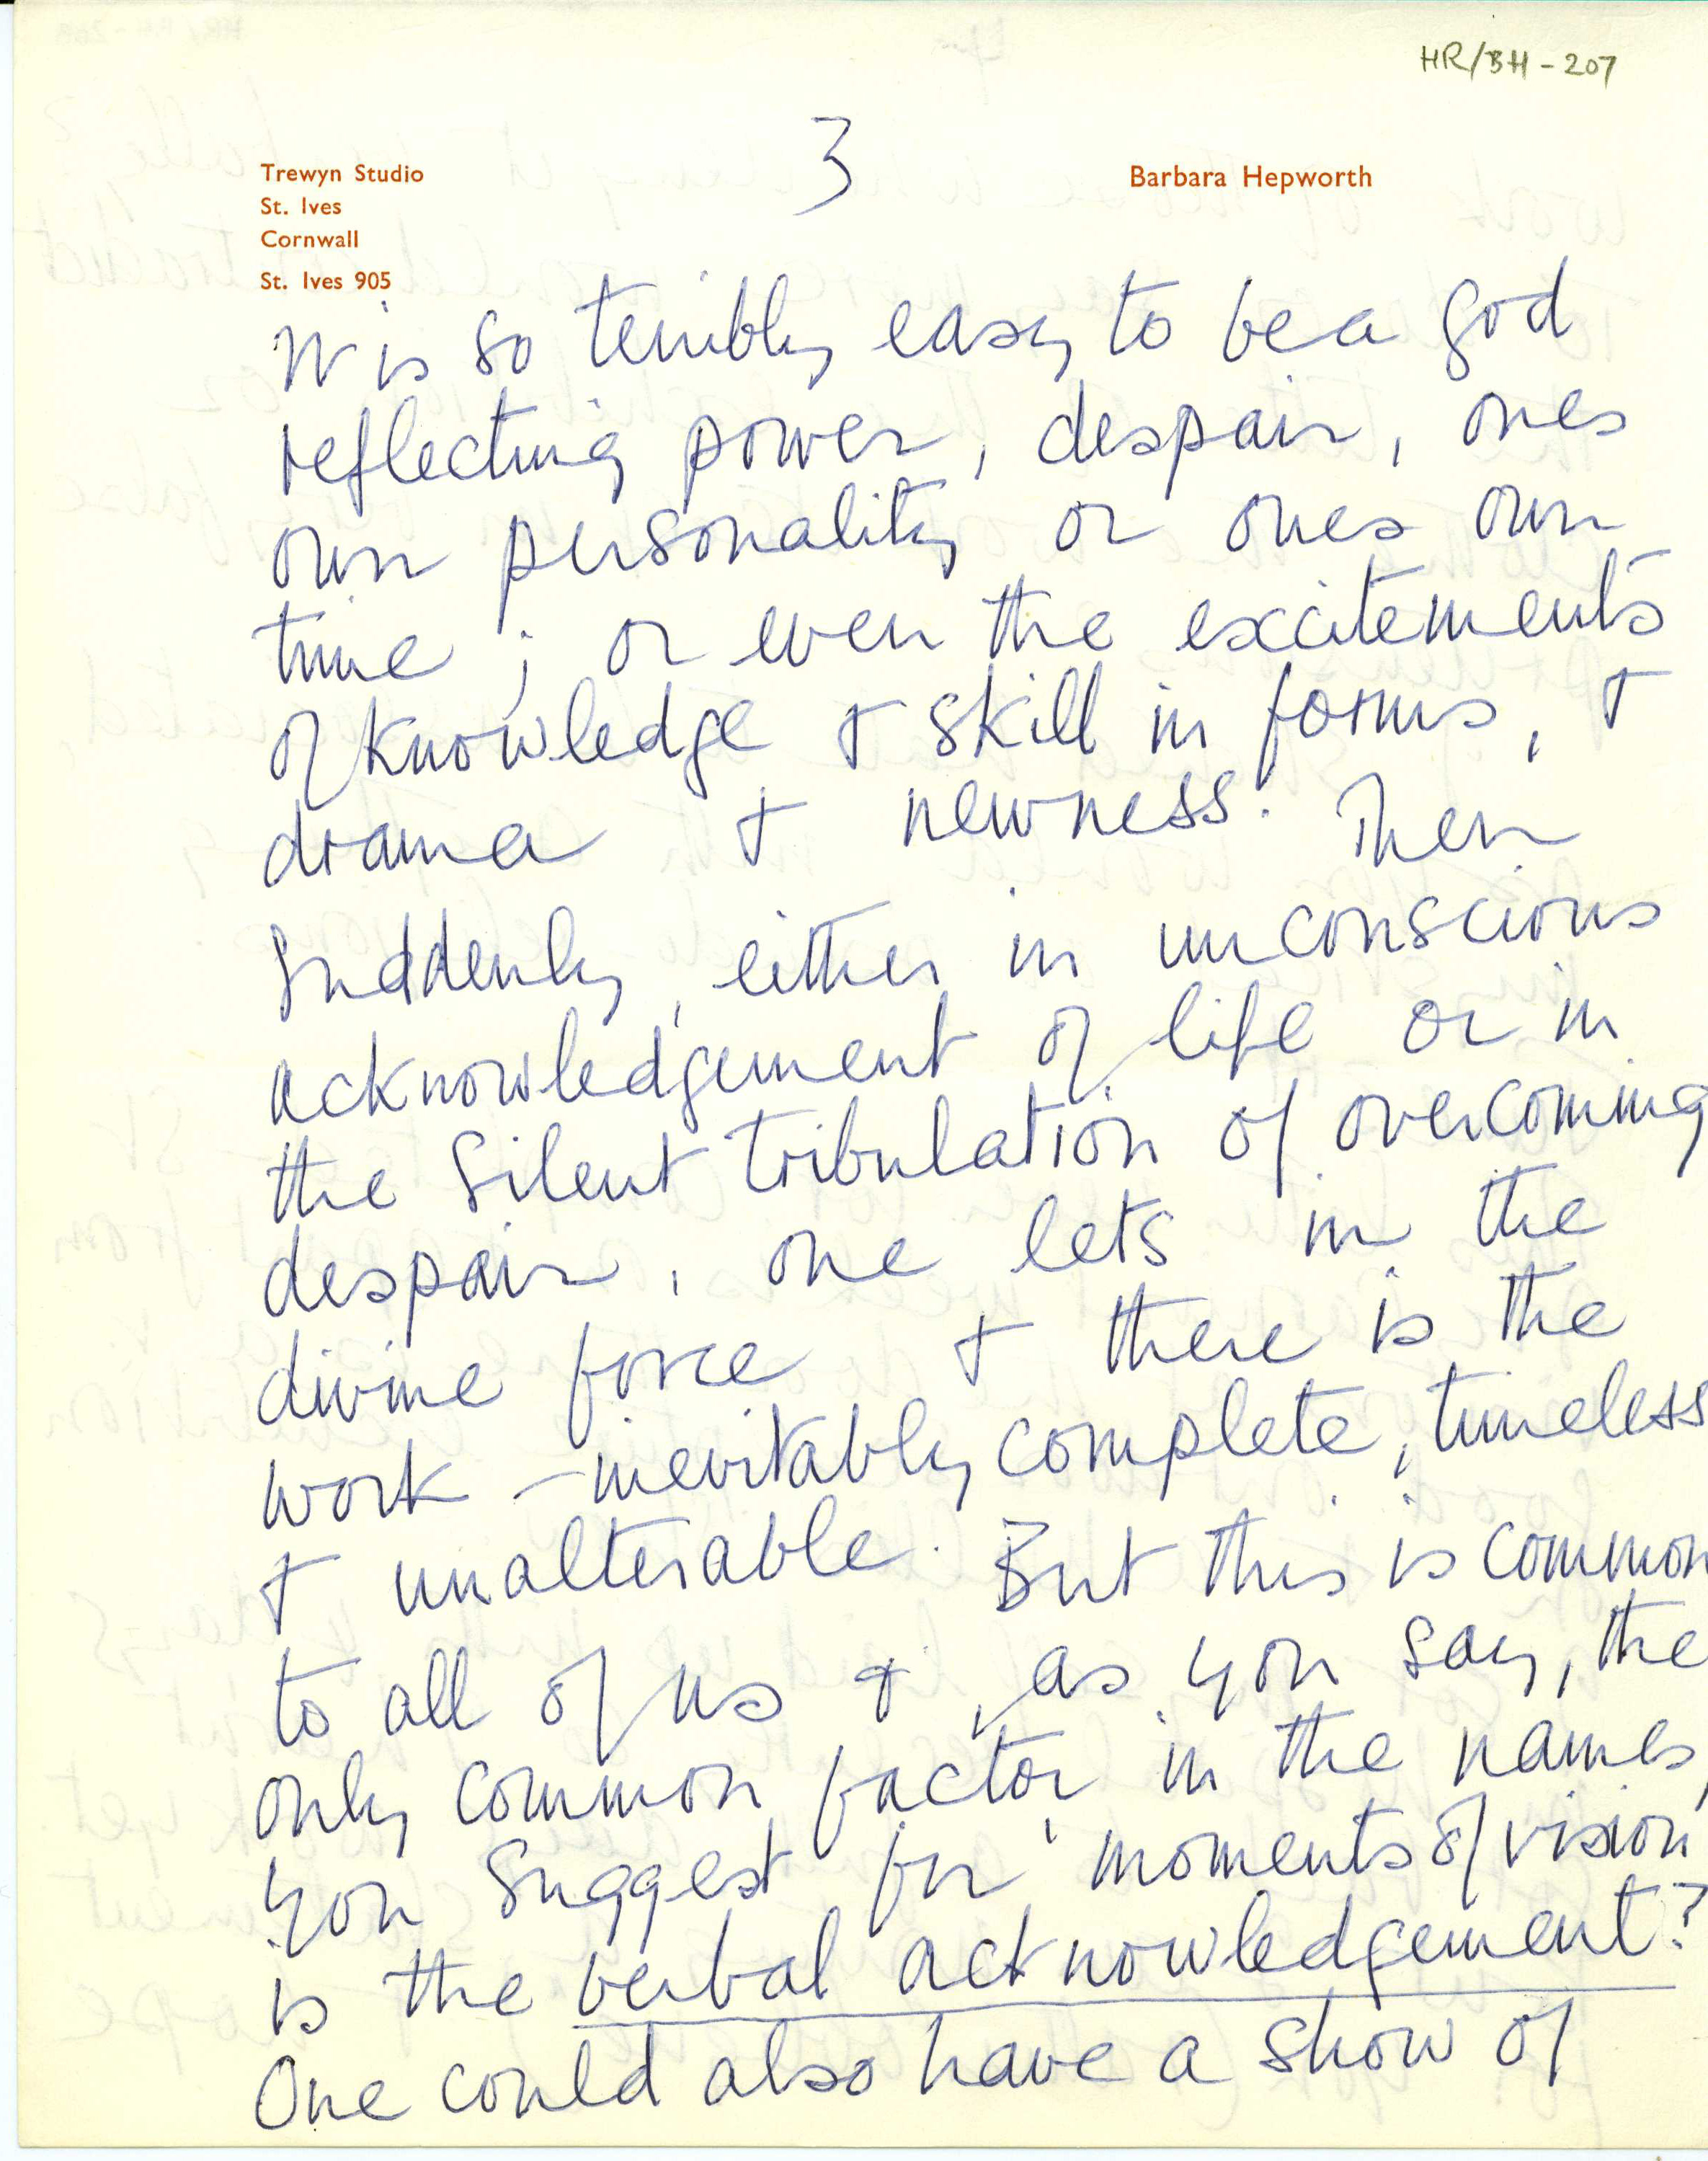 HR/BH - 207
3
Trewyn Studio
Barbara Hepworth
St. Ives
Cornwall
St. Ives 905
It is so terribly easy to be a god
reflecting power, despair, ones
own personality or ones own
time ; or even the excitements
of knowledge + skill in forms, +
drama + newness. Then
suddenly, either in unconscious
acknowledgement of life or in
the silent tribulation of overcoming
despair, one lets in the
divine force + there is the
work – inevitably complete, timeless
+ unalterable. But this is common
to all of us + , as you say, the
only common factor in the names
you suggest for 'moments of vision'
is the verbal acknowledgement?
One could also have a show of